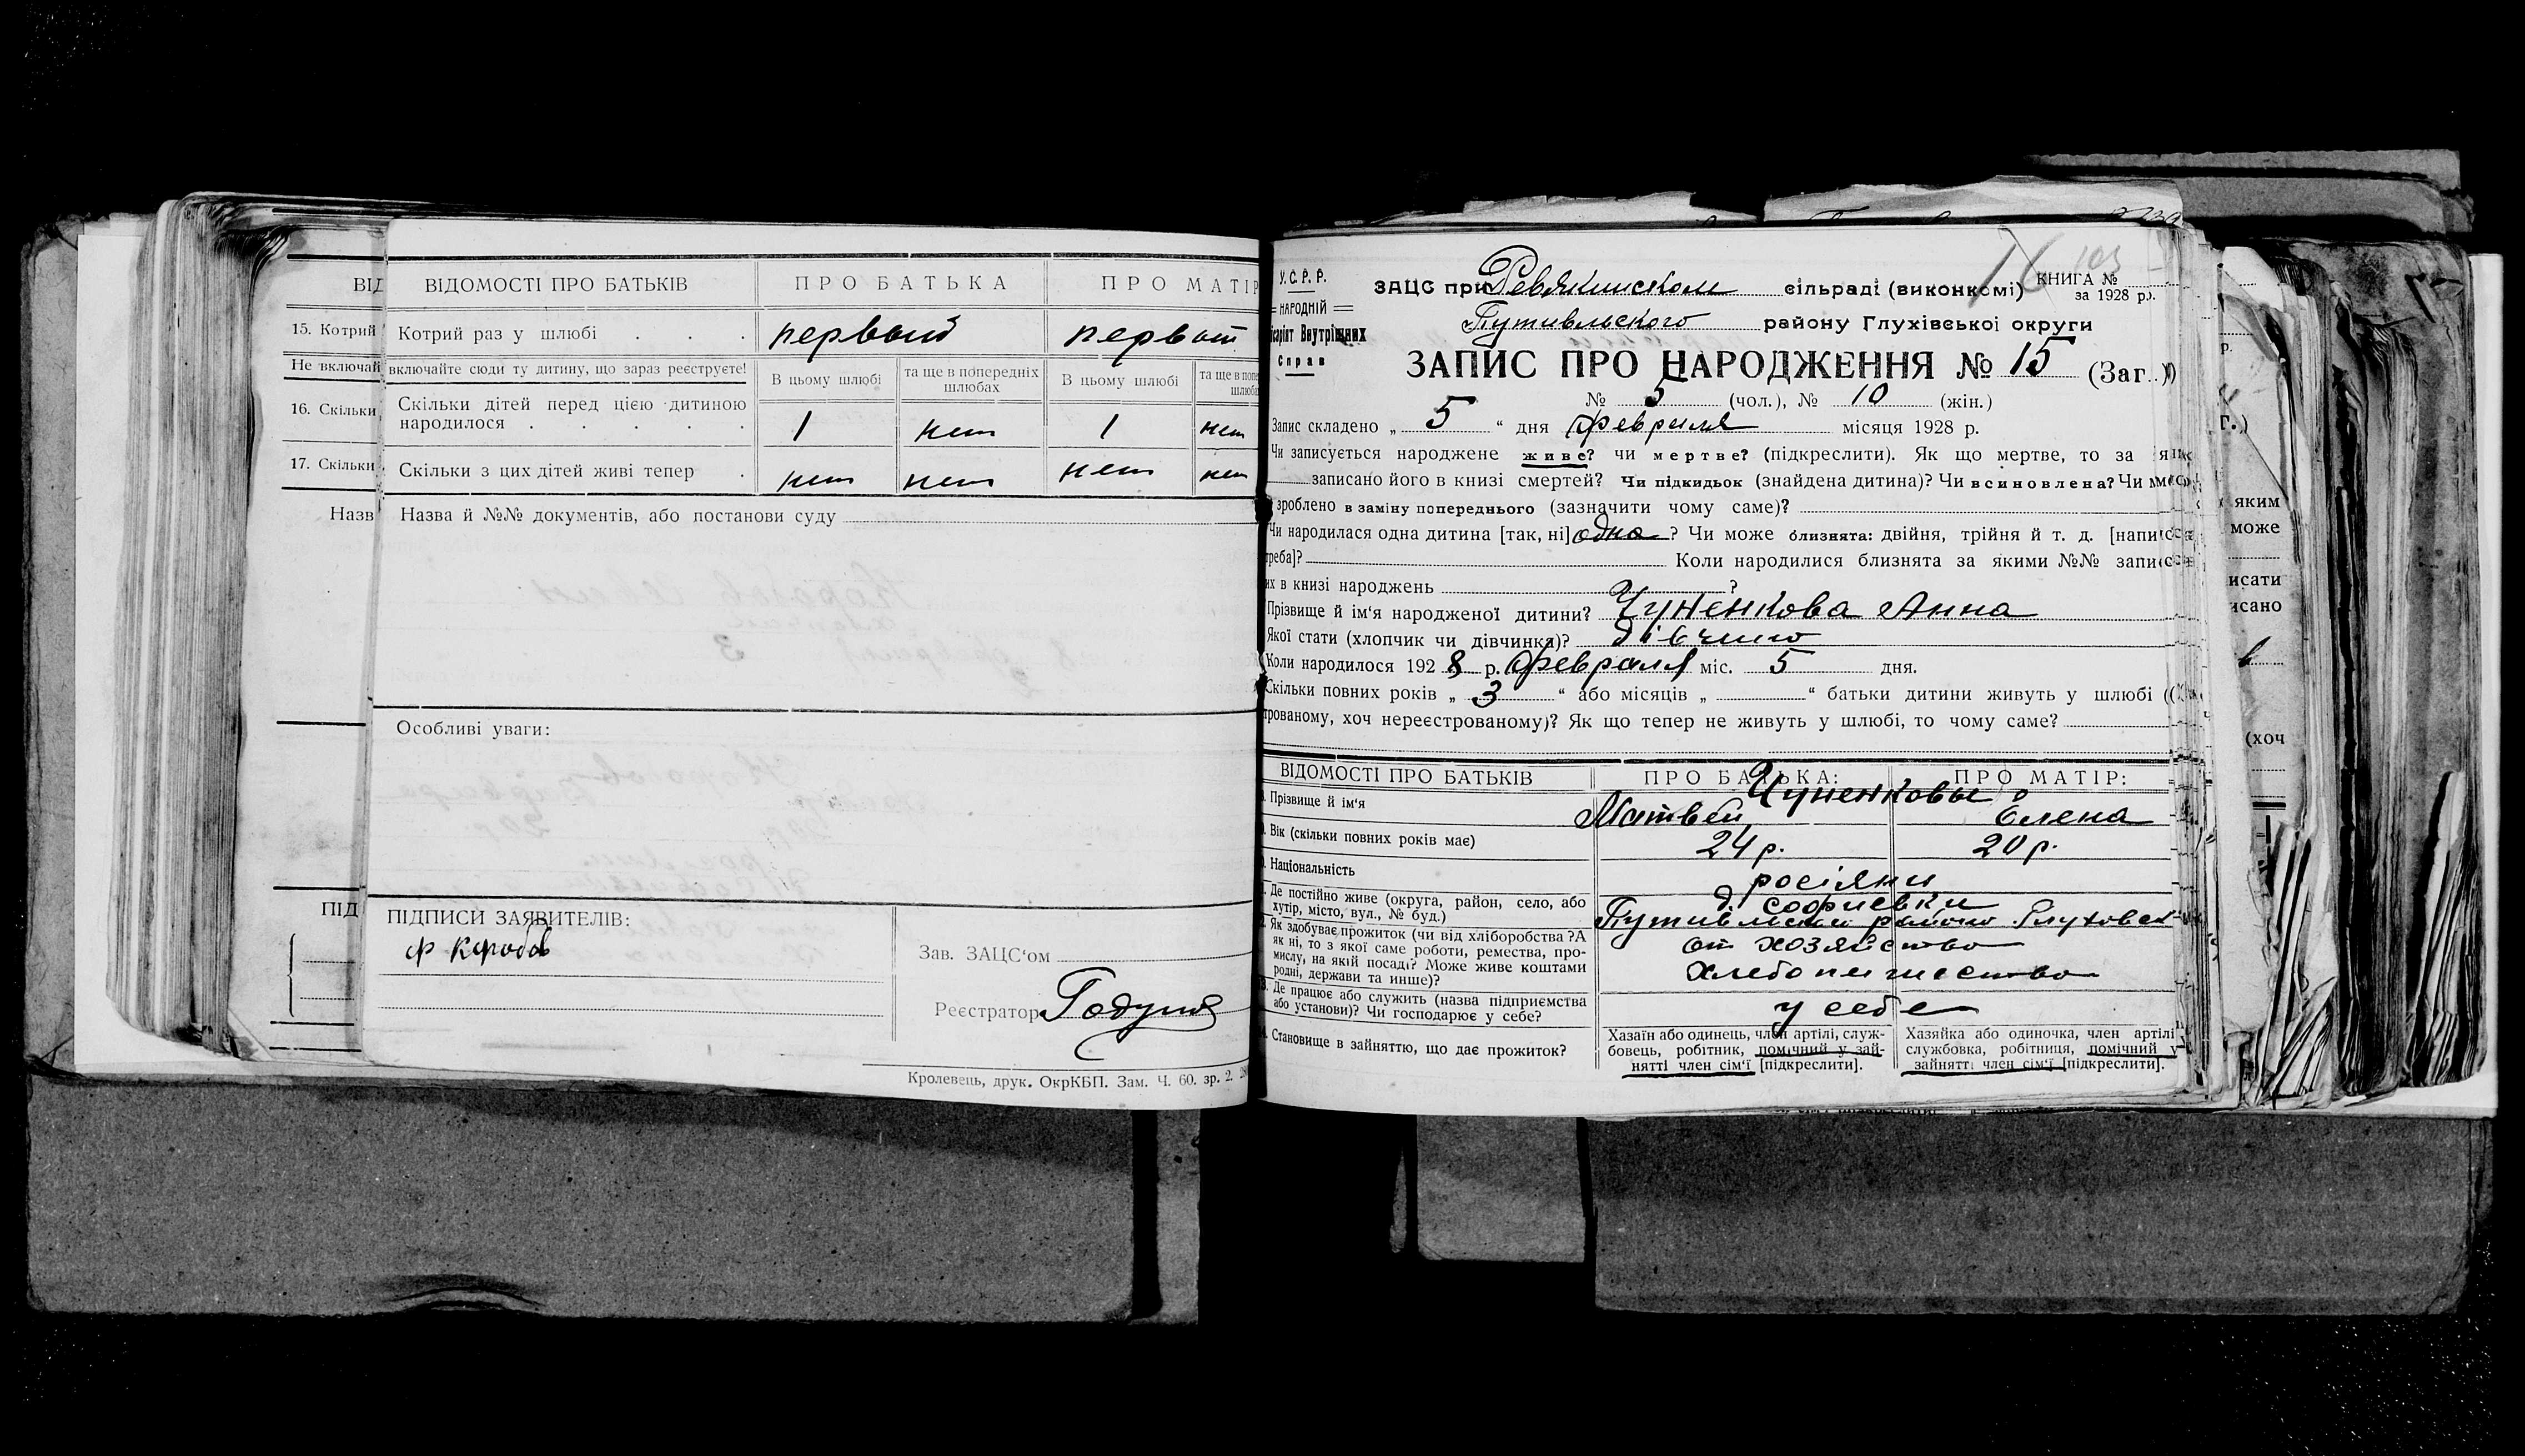 ВІДОМОСТІ ПРО БАТЬКІВ ПРО БАТЬКА ПРО МАТІР
15. Котрий Котрий раз у шлюбі первый первый
Не включай включайте сюди ту дитину, що зараз реєструєте!
В цьому шлюбі та ще в попередніх шлюбах В цьому шлюбі та ще в
16. Скільки Скільки дітей перед цією дитиною
народилося 1 нет 1 нет
17. Скільки Скільки з цих дітей живі тепер нет нет нет нет
Назв Назва й №№ документів, або постанови суду
Особливі уваги:
ПІД ПІДПИСИ ЗАЯВИТЕЛІВ:
Ф Коробов
Зав. ЗАЦС'ом
Реєстратор
Кролевець, друк. ОкрКБП. Зам. Ч. 60. зр. 2.
У.С.Р.Р.
НАРОДНІЙ
Внутрішних
Справ
16 103
ЗАЦС при Ревякинском сільраді (виконкомі) КНИГА №
за 1928 р.
Путивльского району Глухівської округи
ЗАПИС ПРО НАРОДЖЕННЯ № 15 (Заг.)
№ 5 (чол.), № 10 (жін.)
Запис складено „ 5 “ дня февраля місяця 1928 р.
Чи записується народжене живе? чи мертве? (підкреслити). Як що мертве, то за
записано його в книзі смертей? Чи підкидьок (знайдена дитина)? Чи всиновлена? Чи
зроблено в заміну попереднього (зазначити чому саме)?
Чи народилася одна дитина [так, ні] одна ? Чи може близнята: двійня, трійня й т. д.
треба]? Коли народилися близнята за якими №№
их в книзі народжень ?
Прізвище й ім'я народженої дитини? Чуненкова Анна
Якої стати (хлопчик чи дівчинка)?
Коли народилося 192 8 р. февраля міс. 5 дня.
Скільки повних років „ 3 “ або місяців „ “ батьки дитини живуть у шлюбі
трованому, хоч нереєстрованому)? Як що тепер не живуть у шлюбі, то чому саме?
ВІДОМОСТІ ПРО БАТЬКІВ ПРО БАТЬКА: ПРО МАТІР:
Чуненковы
Прізвище й ім'я Матвей Елена
Вік (скільки повних років має) 24 р. 20 р.
Національність росіяни
Де постійно живе (округа, район, село, або
хутір, місто, вул., № буд.)
д. Софиевки
Як здобуває прожиток (чи від хліборобства? А
як ні, то з якої саме роботи, ремества, про-
мислу, на якій посаді? Може живе коштами
родні, держави та инше)?
от хозяйство
Де працює або служить (назва підприємства
або установи)? Чи господарює у себе?
у себе
Становище в зайняттю, що дає прожиток?
Хазаїн або одинець, член артілі, служ-
бовець, робітник, помічний у зай-
нятті член сім'ї [підкреслити].
Хазяйка або одиночка, член артілі
службовка, робітниця, помічний у
зайнятті член сім'ї [підкреслити].
яким
може
исати
исано
(хоч